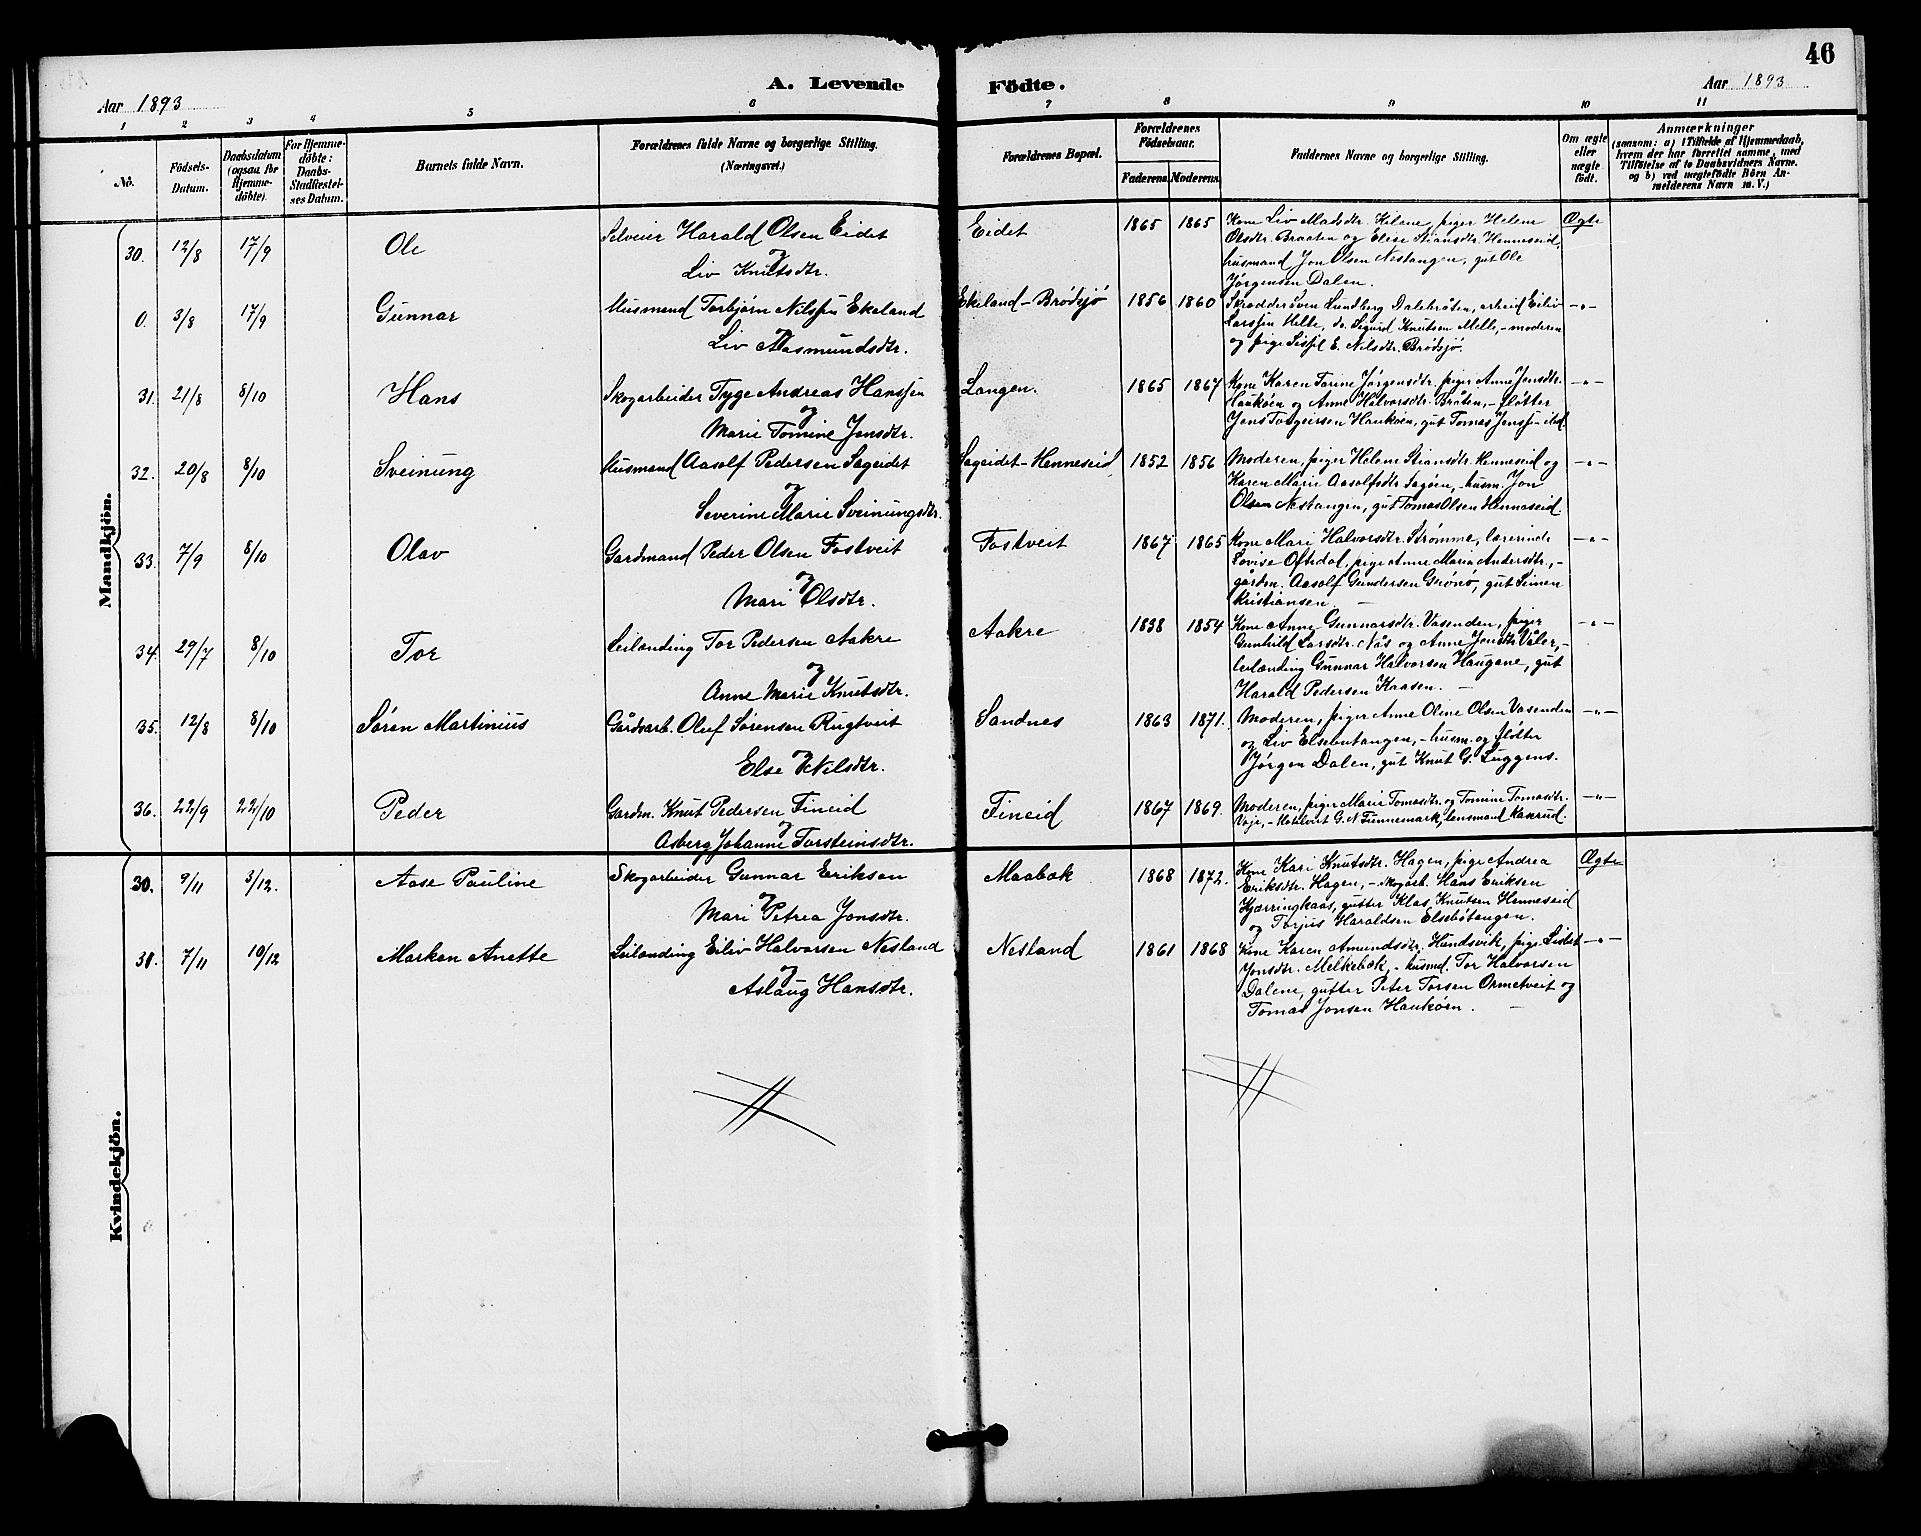 46
A. Levende Födte.
Aar 1893
Aar 1893
1 2 3 4 5 6 7 8 9 10 11
No.
Födsels-
Datum.
Daabsdatum
(ogsaa for
Hjemme-
döbte).
For Hjemme-
döbte:
Daabs-
Stadfæstel-
ses Datum.
Barnets fulde Navn.
Forældrenes fulde Navne og borgerlige Stilling.
(Næringsvei.)
Forældrenes Bopæl.
Forældrenes
Födselsaar.
Faderens. Moderens.
Faddernes Navne og borgerlige Stilling.
Om ægte
eller
uægte
födt.
Anmærkninger
(saasom: a) i Tilfælde af Hjemmedaab,
hvem der har forrettet samme, med
Tilföielse af to Daabsvidners Navne.
og b) ved uægtefödte Börn An-
melderens Navn m. V.)
Mandkjön.
30. 12/8 17/9 Ole
Selveier Harald Olsen Eidet
og
Liv Knutsdtr.
Eidet 1865 1865
Kone Liv Madsdtr. Kilene, piger Helene
Olsdtr. Braaten og Elise Stiansdtr. Henneseid,
husmand Jon Olsen Nestangen, gut Ole
Jørgensen Dalen.
Ægte
0. 3/8 17/9 Gunnar
Husmand Torbjørn Nilssen Ekeland
og
Liv Aasmundsdtr.
Ekeland - Brødsjø 1856 1860
Skrædder Sven Lundberg Dalebråten, arbeid Eiliv
Larssen Helte, do. Sigurd Knutsen Melle, - moderen
og pige Sissil E. Nilsdtr. Brødsjø.
-"-
31. 21/8 8/10 Hans
Skogarbeider Tyge Andreas Hanssen
og
Marie Tomine Jonsdtr.
Langen. 1865 1867
Kone Karen Torine Jørgensdtr. piger Anne Jensdtr.
Haukøen og Anne Halvorsdtr. Bråten, - fløtter
Jens Torgeirsen Haukøen, gut Tomas Jenss - ibid
-"-
32. 20/8 8/10 Sveinung
Husmand Aasolf Pedersen Sageidet
og
Severine Marie Sveinungsdtr.
Sageidet - Henneseid 1852 1856
Moderen, piger Helene Stiansdtr. Henneseid og
Karen Marie Aasolfsdtr. Sagøen, - husm. Jon
Olsen Nestangen, gut Tomas Olsen Henneseid.
-"-
33. 7/9 8/10 Olav
Gardmand Peder Olsen Fostveit
og
Mari Olsdtr.
Fostveit 1867 1865
Kone Mari Halvorsdtr. Strømme, lærerinde
Lovise Oftedal, pige Anne Maria Andersdtr., -
gårdm. Aasolf Gundersen Grønø, gut Simen
Kristiansen. -
-"-
34. 29/7 8/10 Tor
Leilænding Tor Pedersen Aakre
og
Anne Marie Knutsdtr.
Aakre 1838 1854
Kone Anne Gunnarsdtr. Vasenden, piger
Gunhild Larsdtr. Nås og Anne Jonsdtr. Våler, -
leilænding Gunnar Halvorsen Haugane, gut
Harald Pedersen Kaasen. -
-"-
35. 12/8 8/10 Søren Martinius
Gårdarb. Oluf Sørensen Rugtveit
og
Else Nilsdtr.
Sandnes 1863 1871.
Moderen, piger Anne Oline Olsen Vasenden
og Liv Elsebutangen, - husm. og fløtter
Jørgen Dalen, gut Knut G. Luggens.
-"-
36. 22/9 22/10 Peder
Gardm. Knut Pedersen Fineid
og
Asberg Johanne Torsteinsdtr.
Fineid 1867 1869.
Moderen, piger Marie Tomasdtr. og Tomine Tomasdtr.
Voje, - G. N. Tinnemark, lensmand Kaasrud.
-"-
Kvindekjön.
30. 9/11 3/12. Aase Pauline
Skogarbeider Gunnar Eriksen
og
Mari Petrea Jonsdtr.
Maabæk 1868 1872.
Kone Kari Knutsdtr. Hagen, pige Andrea
Eriksdtr. Hagen, - skogarb. Hans Eriksen
Kjærringkaas, gutter Klas Knutsen Henneseid
og Torjus Haraldsen Elsebøtangen.
Ægte
31. 7/11 10/12 Marken Anette
Leilænding Eiliv Halvorsen Nesland
og
Aslaug Hansdtr.
Nesland 1861 1868
Kone Karen Amundsdtr. Hundsvik, pige Lisbet
Jonsdtr. Melkebæk, - husmd. Tor Halvorsen
Dalene, gutter Peter Torsen Ormetveit og
Tomas Jonsen Haukøen. -
-"-